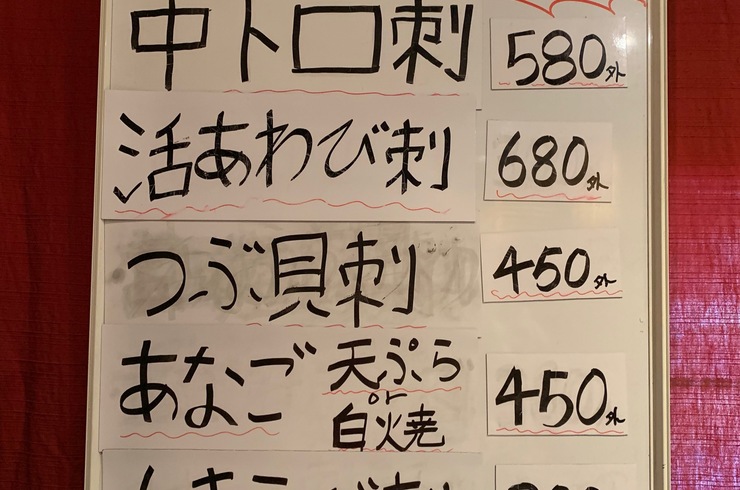 中トロ刺 580外
活あわび刺 680外
つぶ貝刺 450外
あなご 天ぷら or 白焼 450外